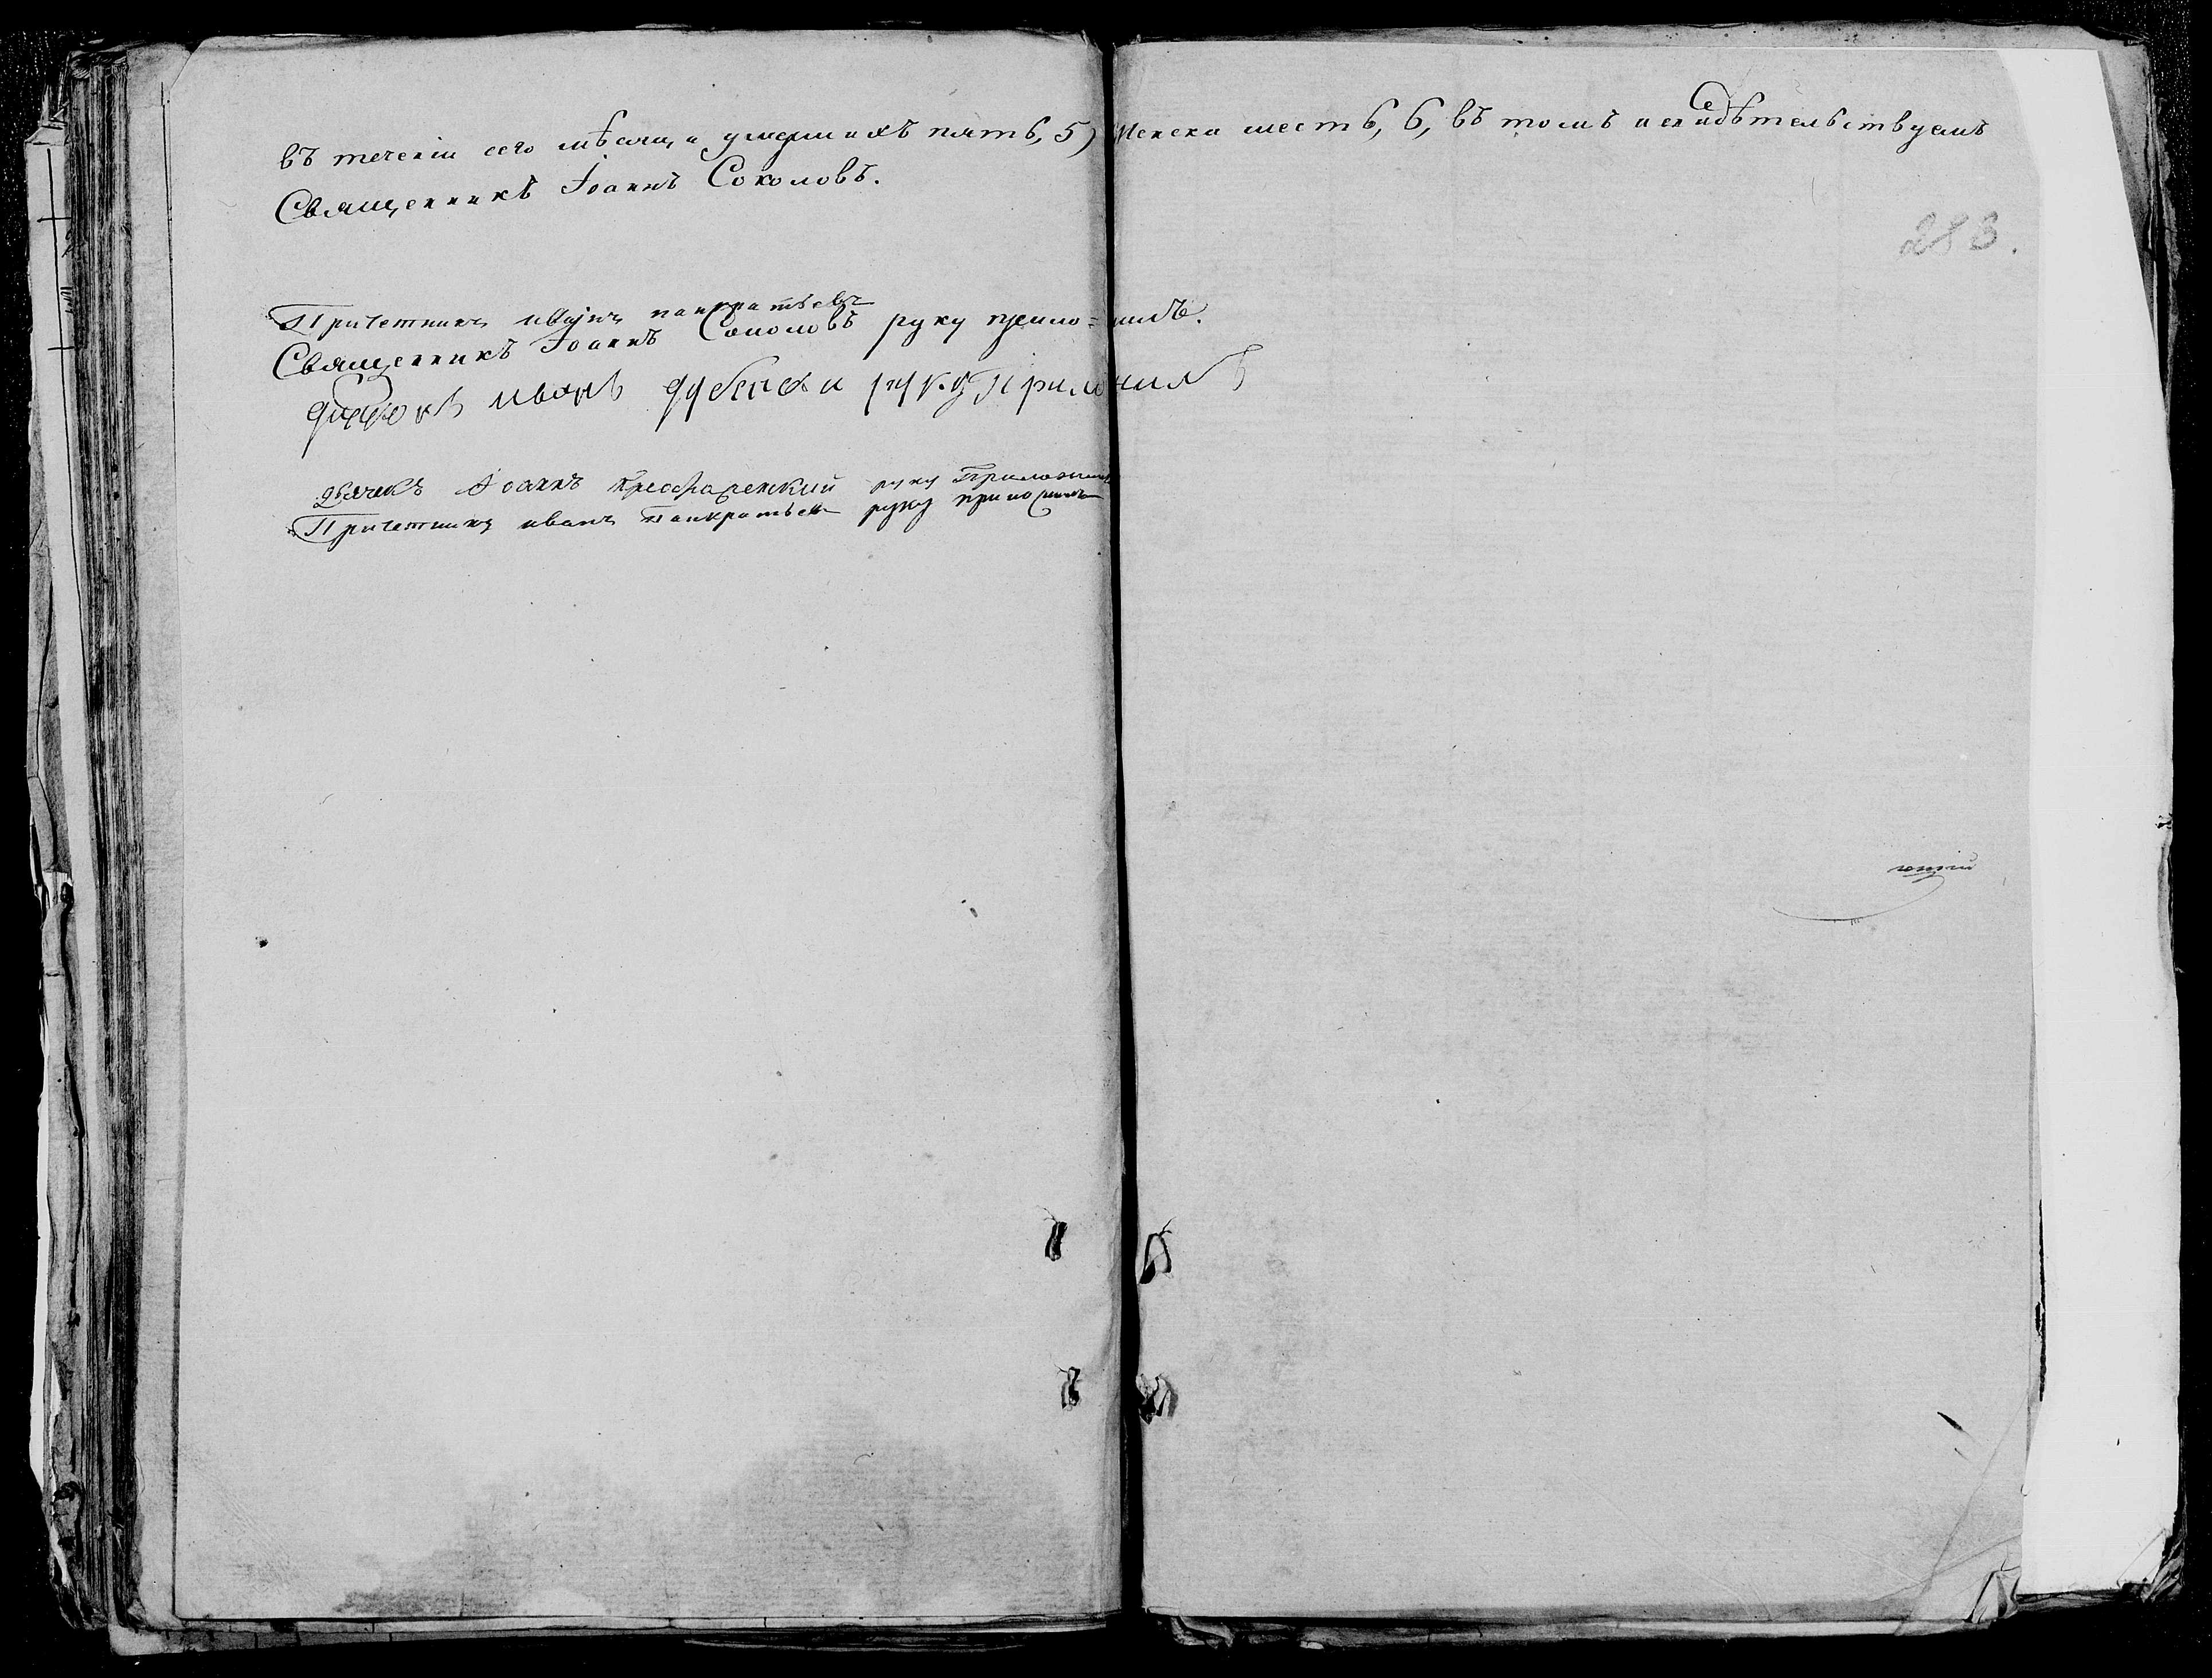 въ теченіи сего мѣсяца умершихъ пять, 5) Женска шесть, 6, въ томъ и свидѣтельствуемъ
Священникъ Іоаннъ Соколовъ.
283.
Причетникъ иванъ панкратьевъ
Священникъ Іоаннъ Соколовъ руку прило=жилъ.
иванъ руку Приложилъ
дьячекъ Іоаннъ руку Приложилъ
Причетникъ иванъ Панкратьевъ руку приложилъ